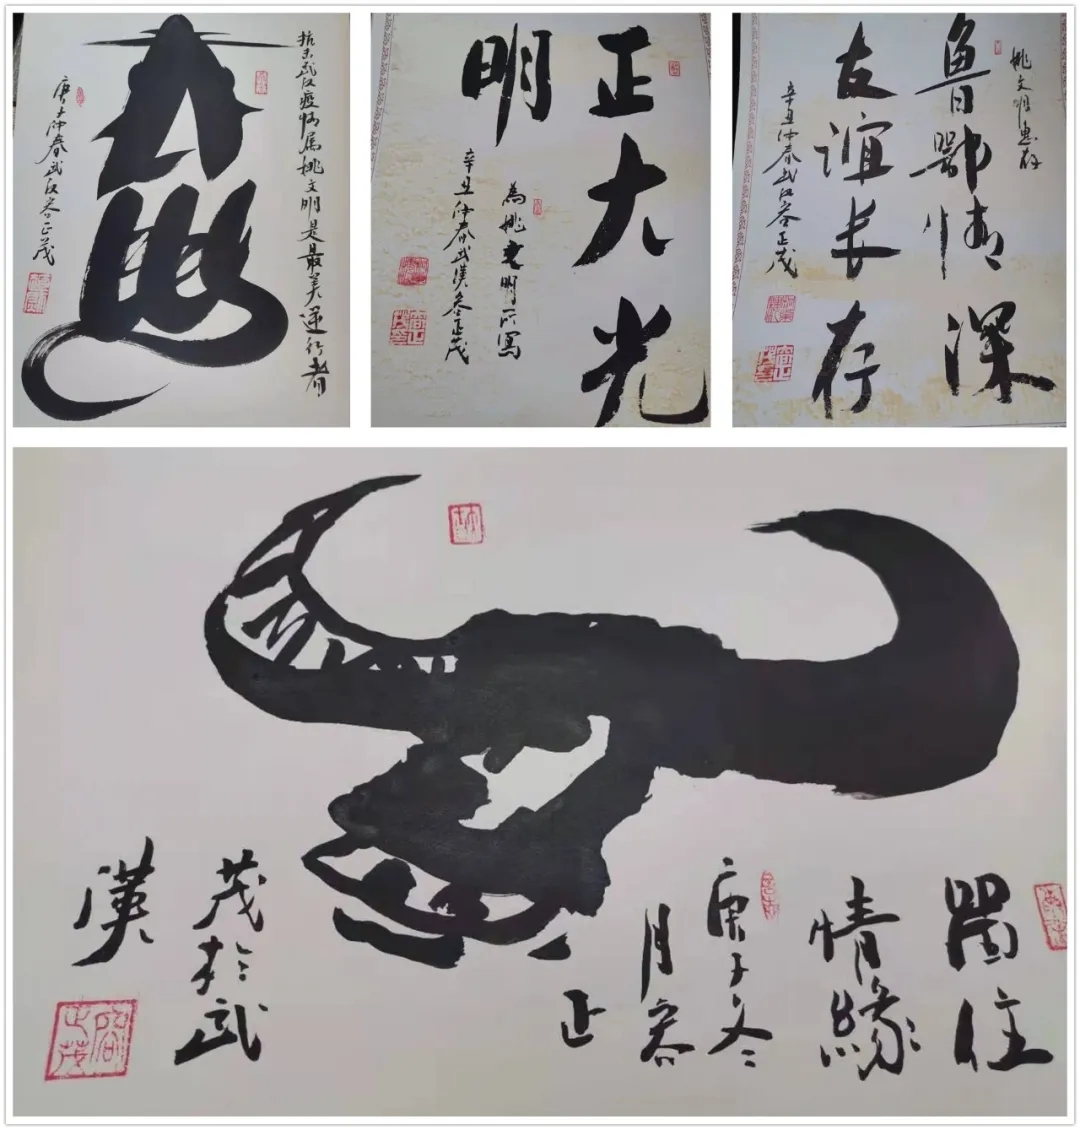 抗击武汉疫情属姚文明是最美逆行者
庚子仲春武汉容正茂
正大光
明
為姚文明所寫
辛丑仲春武漢容正茂
姚文明惠存
鲁鄂情深
友谊长存
辛丑仲春武汉容正茂
留住
情緣
庚子冬
月容
正
茂於武
漢